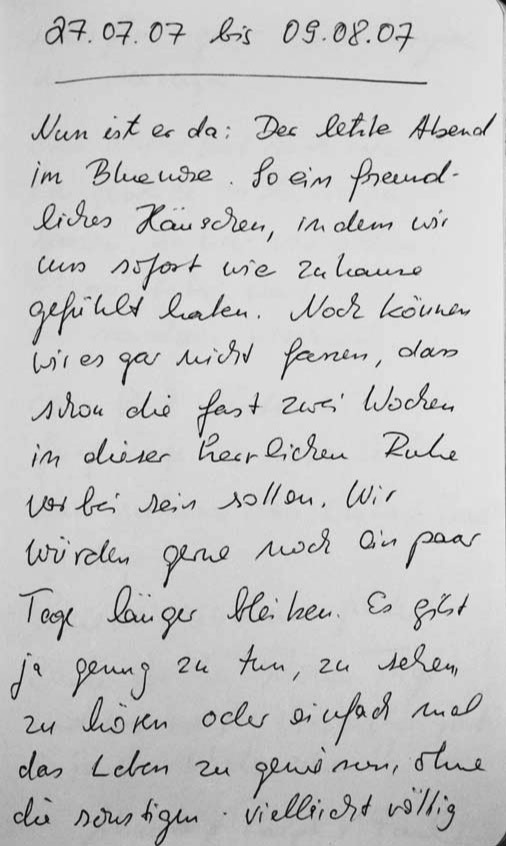 27.07.07 bis 09.08.07
Nun ist er da: Der letzte Abend
im Bluenose. So ein freund-
liches Häuschen, in dem wir
uns sofort wie zuhause
gefühlt haben. Noch können
wir es gar nicht fassen, dass
schon die fast zwei Wochen
in dieser herrlichen Ruhe
vorbei sein sollen. Wir
würden gerne noch ein paar
Tage länger bleiben. Es gibt
ja genug zu tun, zu sehen,
zu hören oder einfach mal
das Leben zu geniessen, ohne
die sonstigen - vielleicht völlig